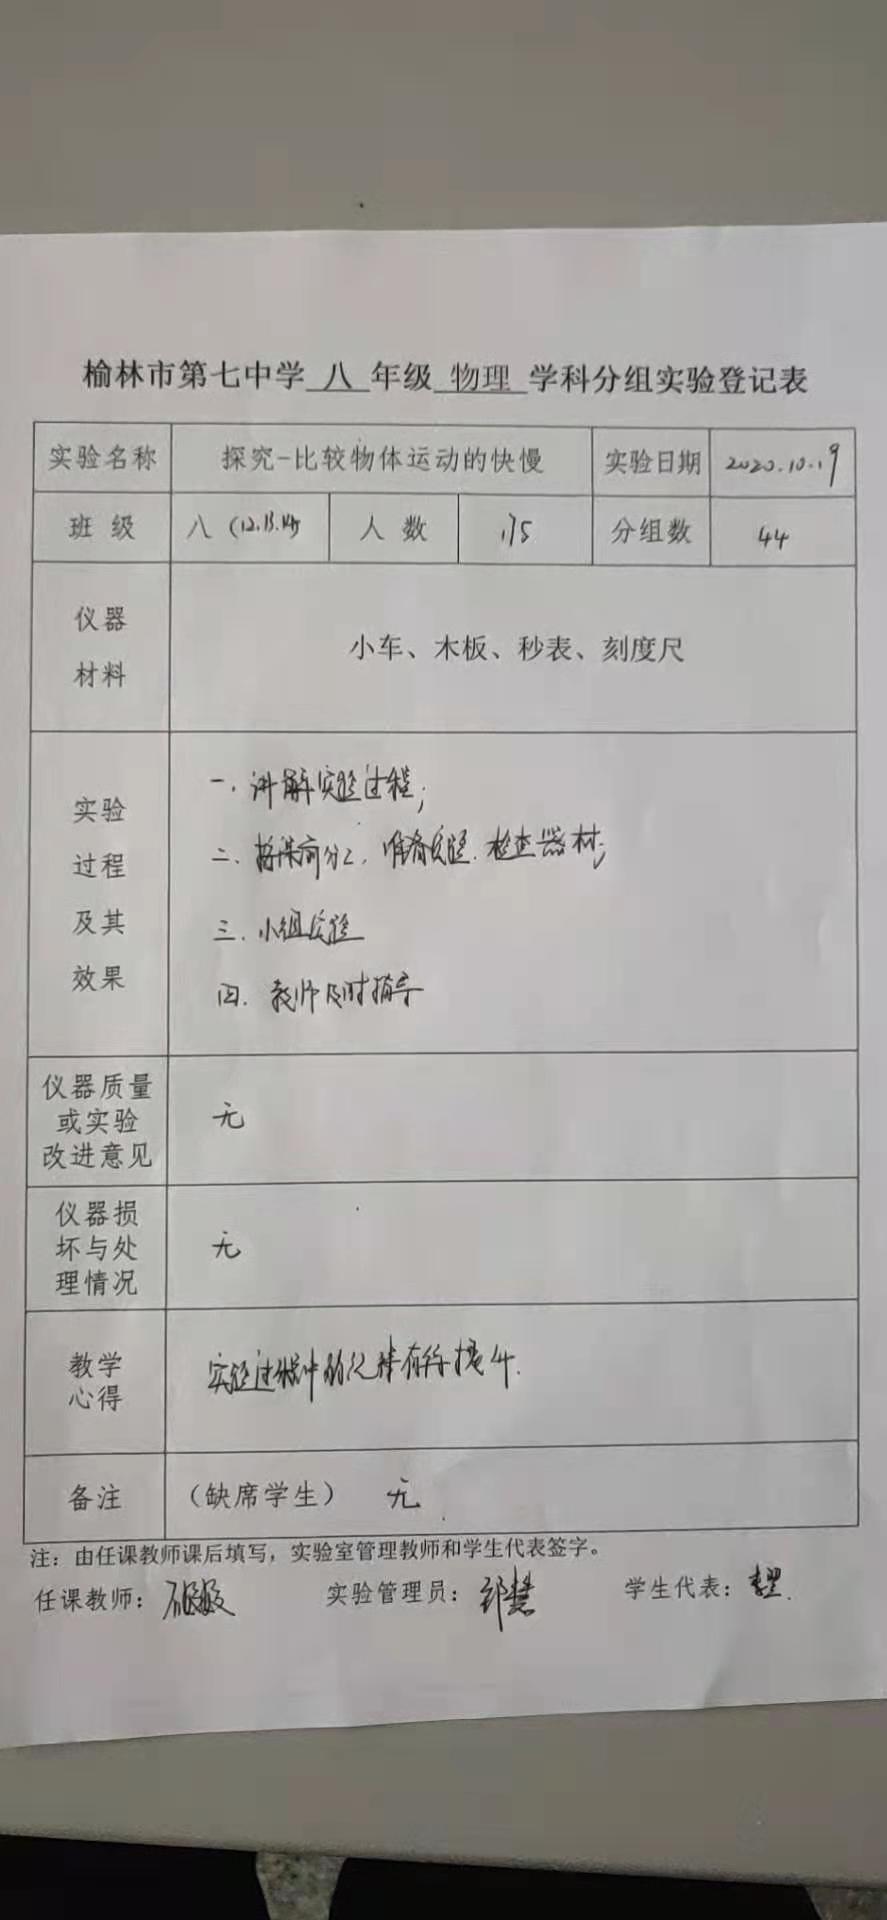 榆林市第七中学 八 年级 物理 学科分组实验登记表
实验名称 探究-比较物体运动的快慢 实验日期 2020.10.19
班 级 八 (12.13.14) 人 数 175 分组数 44
仪器
材料
小车、木板、秒表、刻度尺
实验
过程
及其
效果
一. 讲解实验过程;
二. 按课前分工, 准备实验. 检查器材;
三. 小组实验
四. 教师及时指导
仪器质量
或实验
改进意见
无
仪器损
坏与处
理情况
无
教学
心得
实验过程中的纪律有待提升.
备注 （缺席学生） 无
注：由任课教师课后填写，实验室管理教师和学生代表签字。
任课教师： 实验管理员： 学生代表：